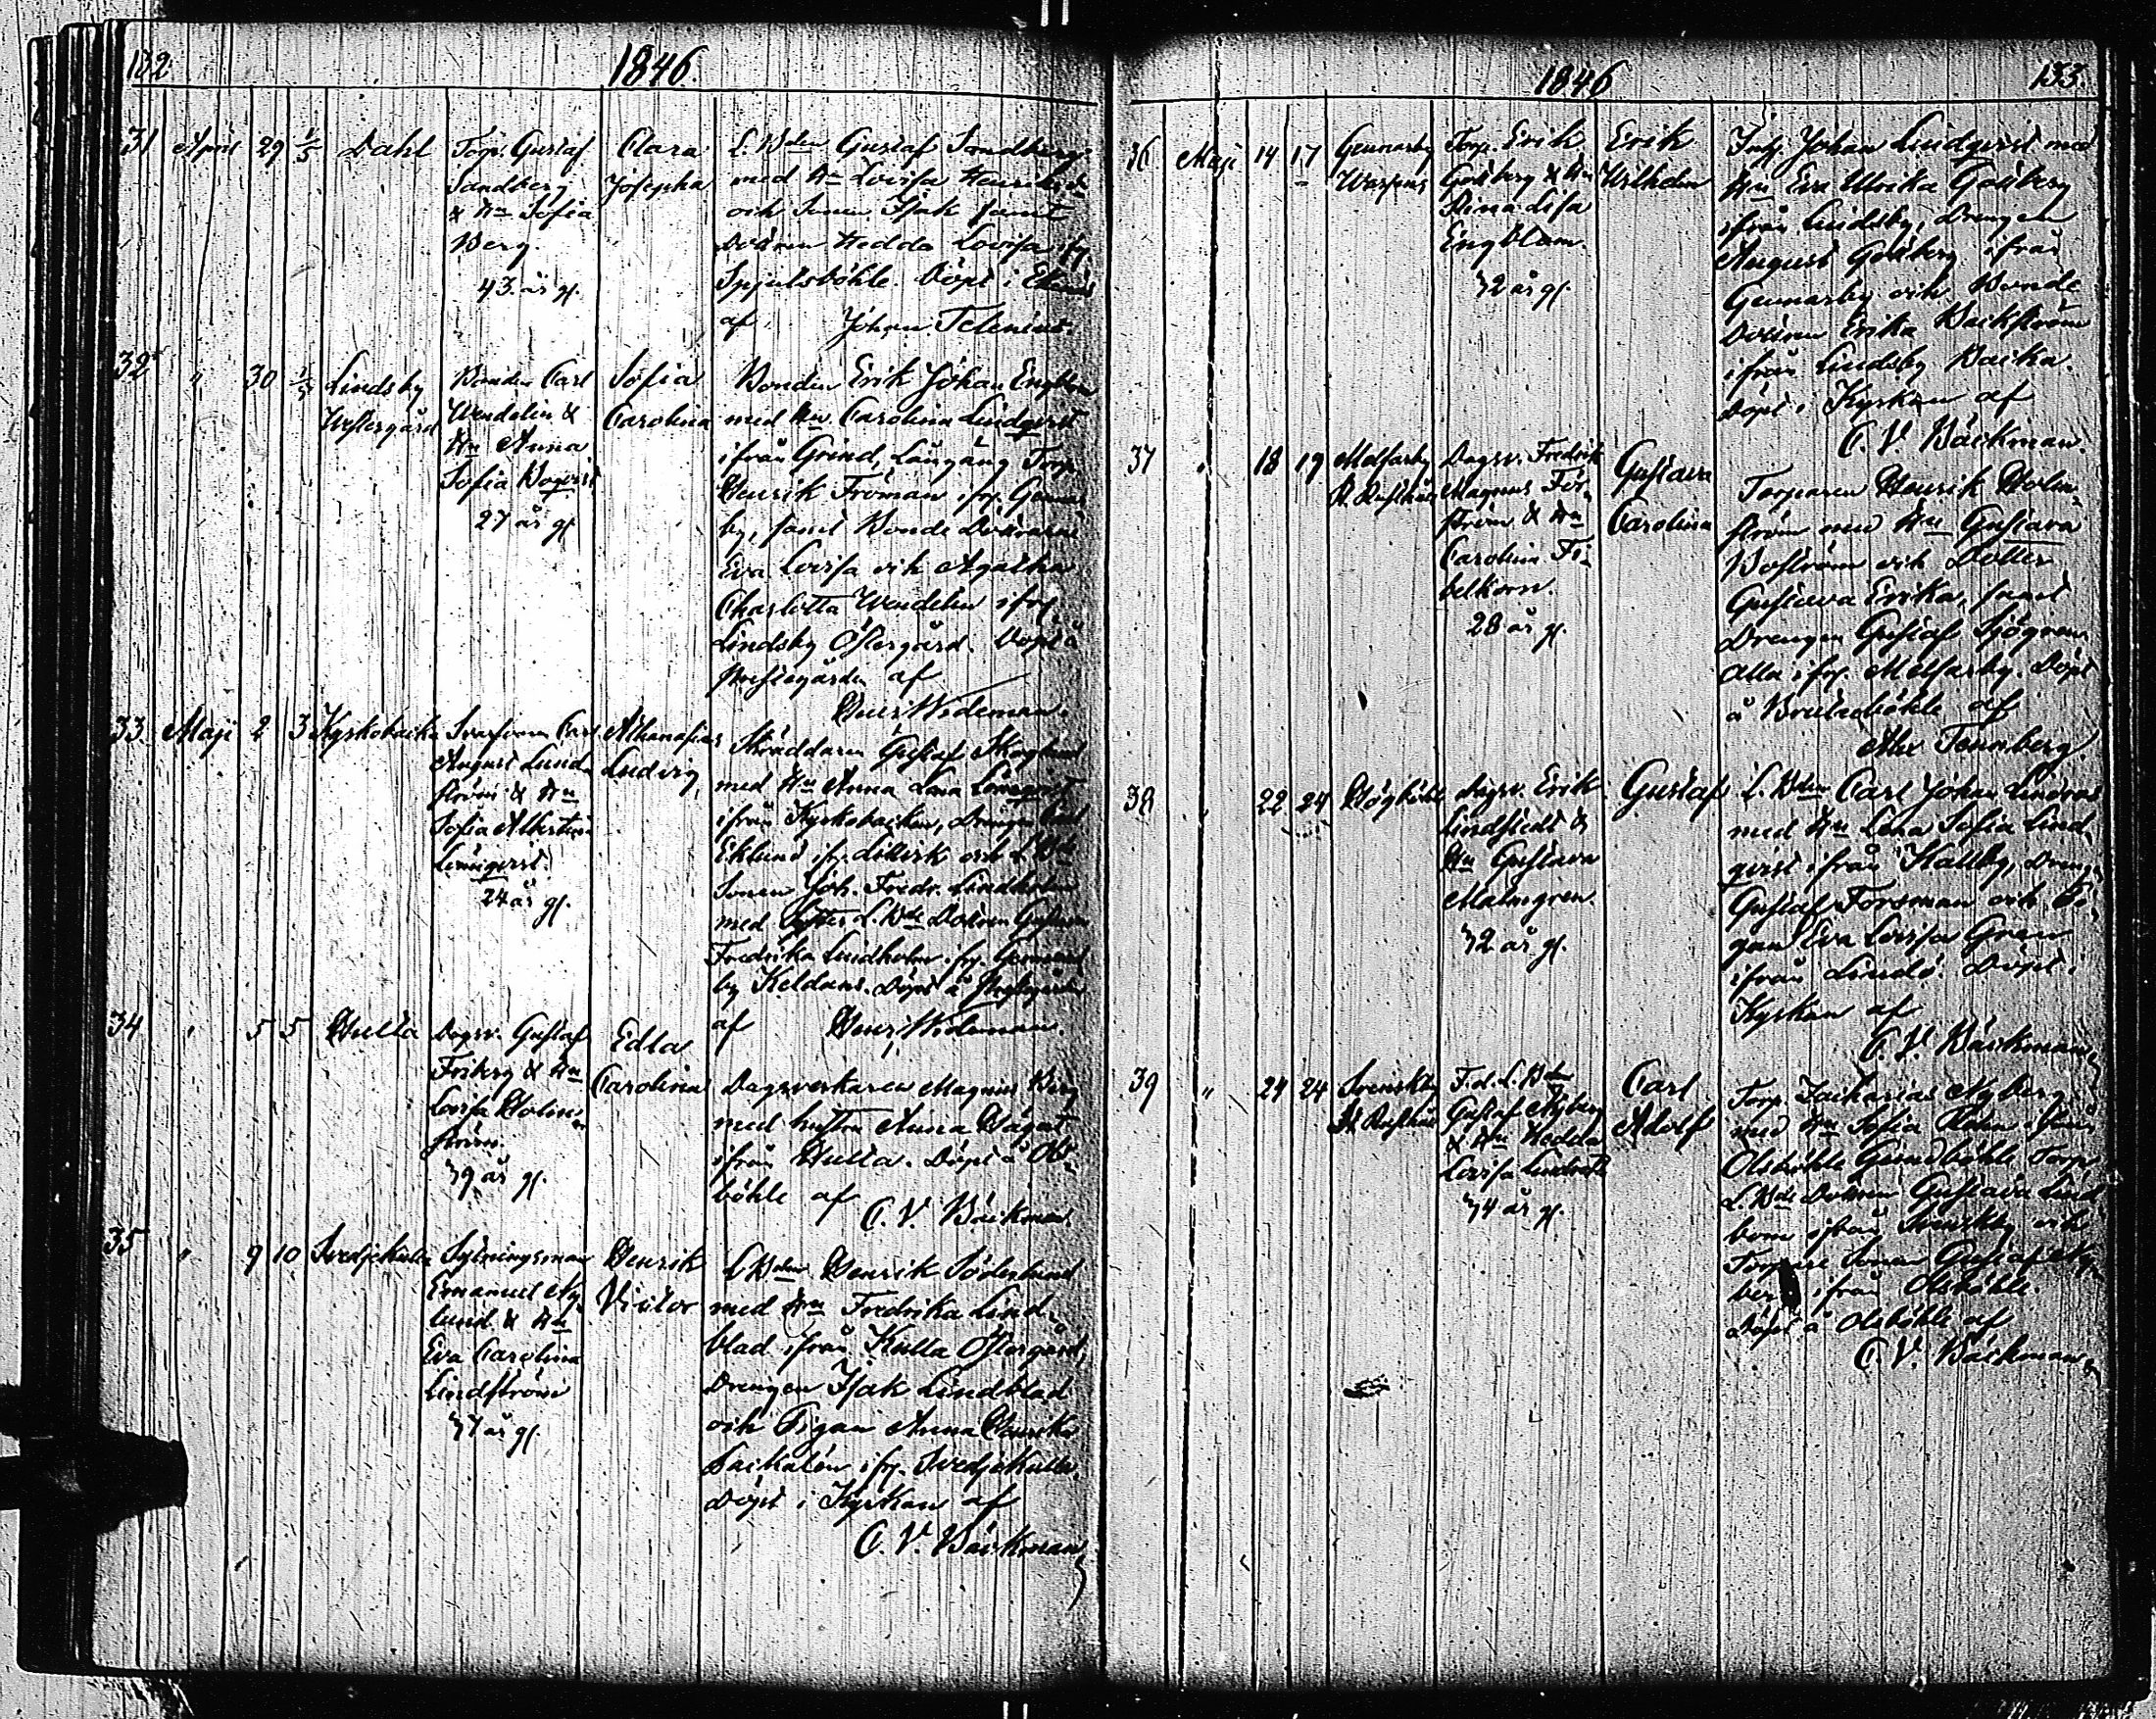 132
1846.
31 April 29 1/5 Dahl
Torp. Gustaf
Sandberg
& Hu Sofia
Berg.
43 år gl.
Clara
Josepha
L. Bden Gustaf Sandberg
med Hu Lovisa
och Sonen Isak samt
Dottren Hedda Lovisa ifr.
Spjutsböhle. Döpt i Ekenäs
af Johan Telenius.
32 " 30 1/5 Lindsby
Westergård
Bonden Carl
Wendelin &
Hu Anna
Sofia
27 år gl.
Sofia
Carolina
Bonden Erik Johan Engblom
med Hu Carolina Lindqvist
ifrån Grind, Långäng Torp.
Henrik Froman ifr.
by, samt Bonde Döttrarne
Eva Lovisa och Agatha
Charlotta Wendelin ifr.
Lindsby Östergård. Döpt å
Prestegården af
Wideman.
33 Maji 2 3 Kyrkobacka
Svarfvaren Carl
August Lund-
ström & Hu
Sofia Albertina
Lönnqvist.
24 år gl.
Athanasius
Ludvig
Skräddaren Gustaf Skoglund
med Hu Anna Lena Lönnqvist
ifrån Kyrkobacken, Drengen
Eklund ifr. och L. Bde
Sonen Joh. Fredr. Lindholm
med Syster L. Bde Dottren
Fredrika Lindholm ifr.
by Keldans. Döpt å
af Wideman.
34 " 5 5 Hulta
Dagsv. Gustaf
Friberg & Hu
Lovisa Holm-
ström.
39 år gl.
Edla
Carolina
Dagsverkaren Magnus Berg
med hustru Anna
ifrån Hulta. Döpt å Ols-
böhle af
C. V. Bäckman.
35 " 9 10 Svedjekulla
Sytningsman
Emanuel Ny-
lund & Hu
Eva Carolina
Lindström
37 år gl.
Henrik
Victor
L. Bden Henrik Söderlund
med Hu Fredrika Lind-
blad ifrån Kulla Östergård,
Drengen Isak Lindblad
och Pigan Anna
ifr. Svedjekulla.
Döpt i Kyrkan af
C. V. Bäckman
1846
133.
36 Maji 14 17 Gennarby
Torp. Erik
Göteberg & Hu
Stina Lisa
Engblom.
32 år gl.
Erik
Wilhelm
Inh. Johan Lindqvist med
Hu Eva Ulrika Göteberg
ifrån Lindsby, Drengen
August Göteberg ifrån
Gennarby och Bonde
Dottren Erika Backström
ifrån Lindsby Backa.
Döpt i Kyrkan af
C. V. Bäckman.
37 " 18 19 Melfsarby
Dagsv. Fredrik
Magnus
ström & Hu
Carolina Fi-
belkorn.
28 år gl.
Gustava
Carolina
Torparen Henrik Holm-
ström med Hu Gustava
Boström och Dotter
Gustava Erika, samt
Drengen Gustaf Sjögren
alla ifr. Melfsarby. Döpt
å Brutuböhle af
Alex Tennberg.
38 " 22 24 Högböhle
Dagsv. Erik
Lindstedt &
Hu Gustava
Malmgren.
32 år gl.
Gustaf
L. Bden Carl Johan Lindroos
med Hu Lena Sofia Lind-
qvist ifrån Kallby, Dreng.
Gustaf Forsman och Pi-
gan Eva Lovisa Gren
ifrån Lindö. Döpt i
Kyrkan af
C. V. Bäckman
39 " 24 24 Svenskby
F. d. L. Bden
Gustaf Nyberg
& Hu Hedda
Lovisa
34 år gl.
Carl
Adolf
Torp. Zacharias Nyberg
med Hu Sofia ifrån
Olsböhle Torp,
L. Bde Dottren Gustava Lind-
bom ifrån Svenskby och
Torpare Sonen Gustaf Ny-
berg ifrån Olsböhle.
Döpt å Olsböhle af
C. V. Bäckman